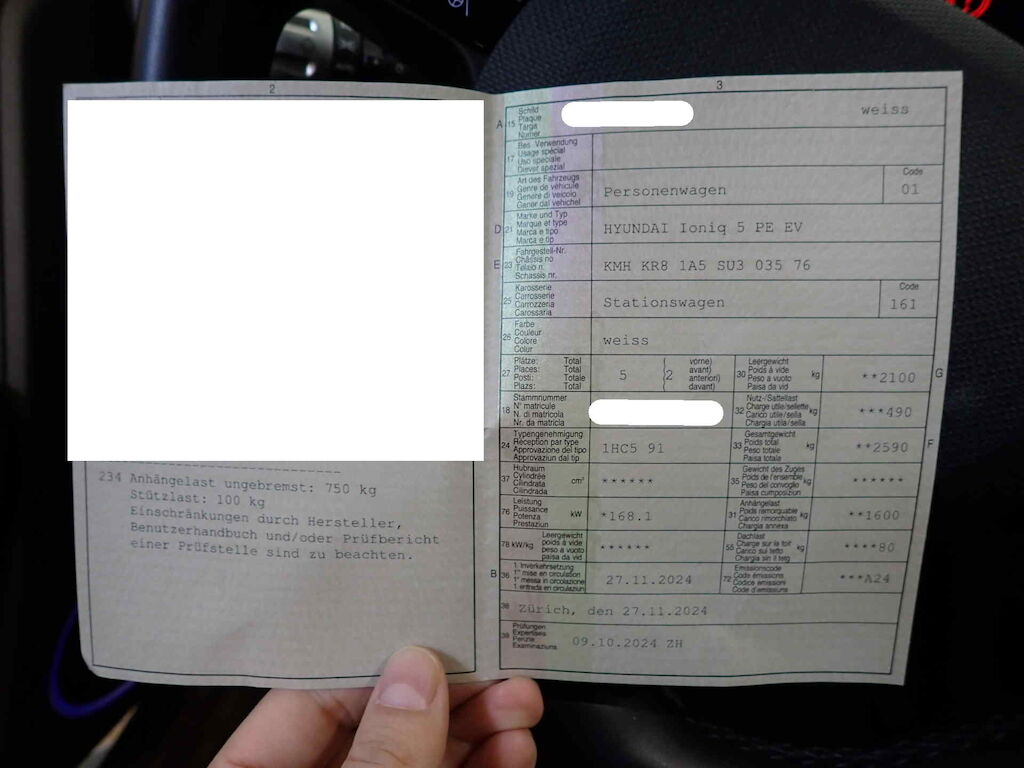 2
234 Anhängelast ungebremst: 750 kg
Stützlast: 100 kg
Einschränkungen durch Hersteller,
Benutzerhandbuch und/oder Prüfbericht
einer Prüfstelle sind zu beachten.
3
A 15 Schild
Plaque
Targa
Numer
weiss
17 Bes. Verwendung
Usage spécial
Uso speciale
Diever spezial
19 Art des Fahrzeugs
Genre de véhicule
Genere di veicolo
Gener dal vehichel
Personenwagen
Code
01
D 21 Marke und Typ
Marque et type
Marca e tipo
Marca e tip
HYUNDAI Ioniq 5 PE EV
E 23 Fahrgestell-Nr.
Châssis no
Telaio n.
Schassis nr.
KMH KR8 1A5 SU3 035 76
25 Karosserie
Carrosserie
Carrozzeria
Carossaria
Stationswagen
Code
161
26 Farbe
Couleur
Colore
Colur
weiss
27 Plätze: Total
Places: Total
Posti: Totale
Plazs: Total
5
( vorne)
avant)
(2 anteriori)
( davant)
30 Leergewicht
Poids à vide
Peso a vuoto
Paisa da vid
kg
**2100
G
18 Stammnummer
N° matricule
N. di matricola
Nr. da matricla
32 Nutz-/Sattellast
Charge utile/sellette
Carico utile/sella
Chargia utila/sella
kg
***490
24 Typengenehmigung
Réception par type
Approvazione del tipo
Approvaziun dal tip
1HC5 91
33 Gesamtgewicht
Poids total
Peso totale
Paisa totala
kg
**2590
F
37 Hubraum
Cylindrée
Cilindrata
Cilindrada
cm³
******
35 Gewicht des Zuges
Poids de l'ensemble
Peso del convoglio
Paisa cumposiziun
kg
******
76 Leistung
Puissance
Potenza
Prestaziun
kW
*168.1
31 Anhängelast
Poids remorquable
Carico rimorchiato
Chargia annexa
kg
**1600
78 kW/kg
Leergewicht
poids à vide
peso a vuoto
paisa da vid
******
55 Dachlast
Charge sur le toit
Carico sul tetto
Chargia sin il tetg
kg
****80
B 36 1. Inverkehrsetzung
1re mise en circulation
1a messa in circolazione
1. entrada en circulaziun
27.11.2024
72 Emissionscode
Code émissions
Codice emissioni
Code d'emissiuns
***A24
38 Zürich, den 27.11.2024
39 Prüfungen
Expertises
Perizie
Examinaziuns
09.10.2024 ZH